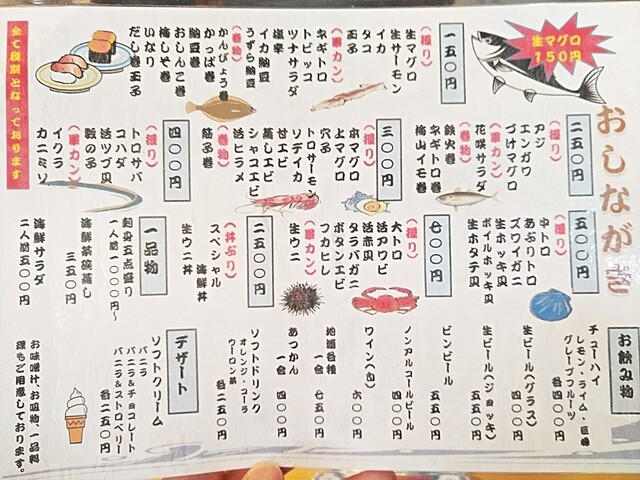 おしながき
生マグロ
150円
一五〇円
(握り)
生マグロ
生サーモン
イカ
タコ
玉子
(軍カン)
ネギトロ
トビッコ
ツナサラダ
塩辛
イカ納豆
うずら納豆
(巻物)
かんぴょう巻
かっぱ巻
納豆巻
おしんこ巻
梅しそ巻
いなり
だし巻玉子
全て税別となっております
二五〇円
(握り)
アジ
エンガワ
づけマグロ
(軍カン)
花咲サラダ
(巻物)
鉄火巻
ネギトロ巻
梅山イモ巻
三〇〇円
(握り)
本マグロ
上マグロ
穴子
トロサーモン
ソデイカ
甘エビ
蒸しエビ
シャコエビ
活ヒラメ
(巻物)
筋子巻
四〇〇円
(握り)
トロサバ
コハダ
活ツブ貝
数の子
(軍カン)
イクラ
カニミソ
五〇〇円
(握り)
中トロ
あぶりトロ
ズワイガニ
生ホッキ貝
ボイルホッキ貝
生ホタテ貝
七〇〇円
(握り)
大トロ
活アワビ
活赤貝
タラバガニ
ボタンエビ
フカヒレ
(軍カン)
生ウニ
二五〇〇円
(丼ぶり)
スペシャル
海鮮丼
生ウニ丼
一品物
刺身五点盛り
一人前一〇〇〇円〜
海鮮茶碗蒸し
三五〇円
海鮮サラダ
二人前五〇〇円
お飲み物
チューハイ
レモン・ライム・巨峰
グレープフルーツ
各四〇〇円
生ビール(グラス)
四〇〇円
生ビール(ジョッキ)
五五〇円
ビンビール
五五〇円
ノンアルコールビール
四〇〇円
ワイン(白)
六〇〇円
地酒各種
一合 七五〇円
あつかん
一合 四〇〇円
ソフトドリンク
オレンジ・コーラ
ウーロン茶
各二五〇円
デザート
ソフトクリーム
バニラ
バニラ&チョコレート
バニラ&ストロベリー
各二五〇円
お味噌汁、お吸物、一品料
理もご用意しております。